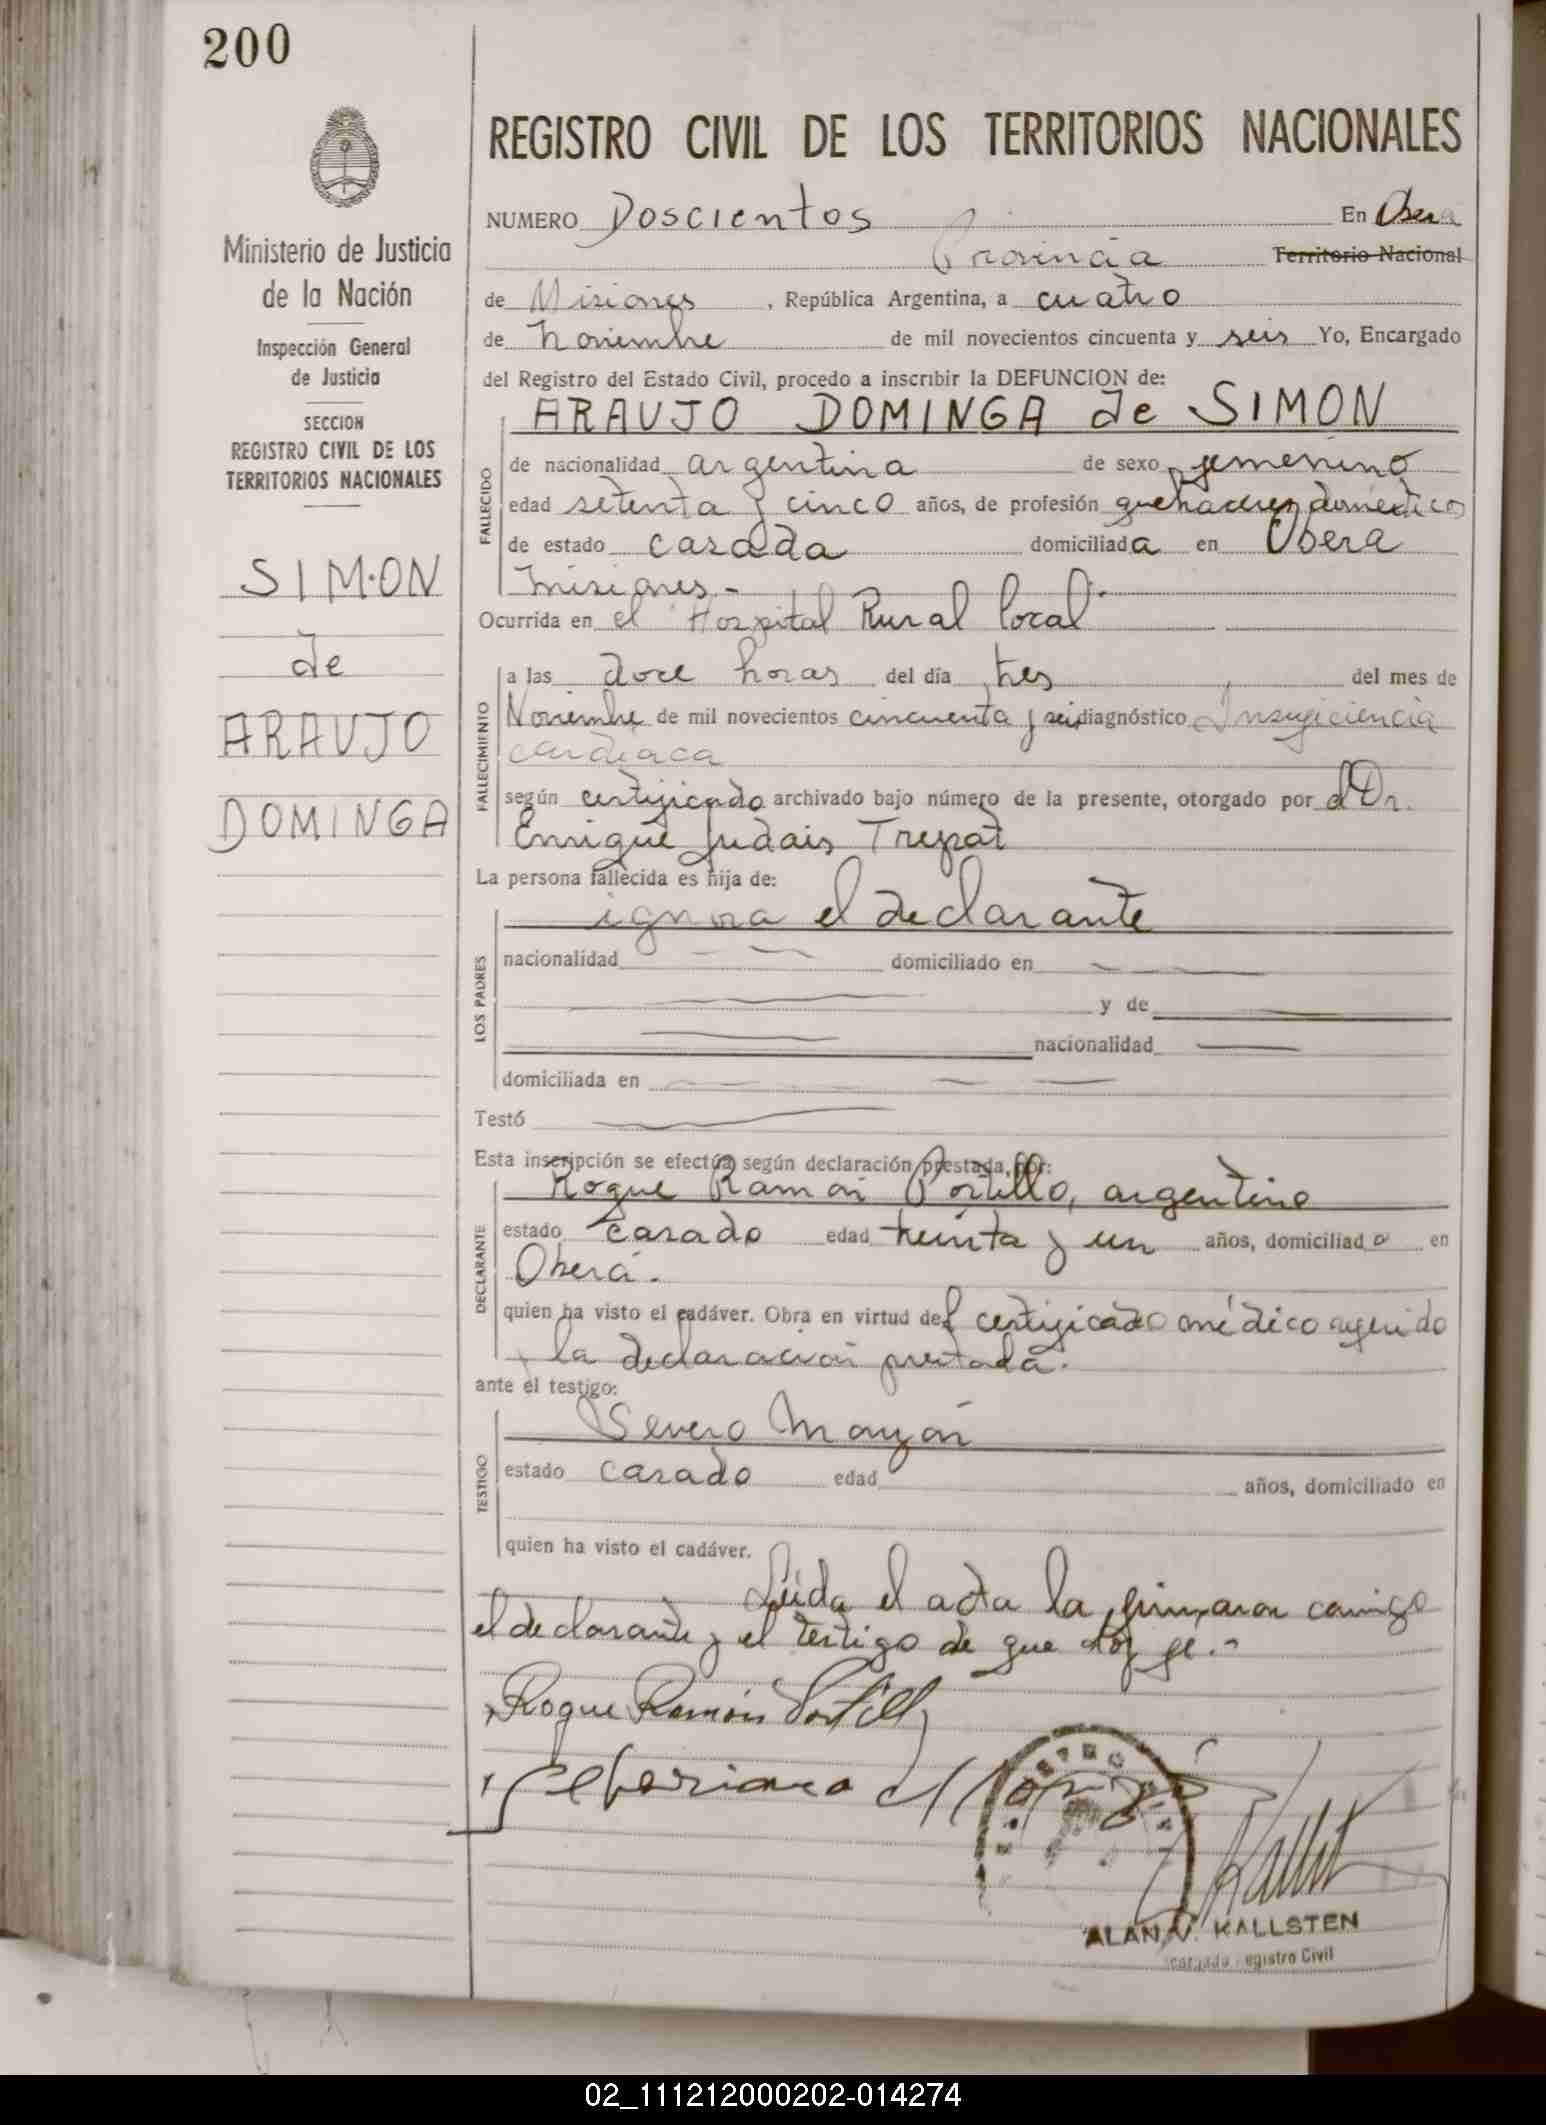 200
REGISTRO CIVIL DE LOS TERRITORIOS NACIONALES
Ministerio de Justicia
de la Nación
Inspección General
de Justicia
SECCION
REGISTRO CIVIL DE LOS
TERRITORIOS NACIONALES
SIMON
de
ARAUJO
DOMINGA
NUMERO Doscientos En Obera
Provincia Territorio Nacional
de Misiones , República Argentina, a cuatro
de noviembre de mil novecientos cincuenta y seis Yo, Encargado
del Registro del Estado Civil, procedo a inscribir la DEFUNCION de:
ARAUJO DOMINGA de SIMON
FALLECIDO
de nacionalidad argentina de sexo femenino
edad setenta y cinco años, de profesión quehaceres domésticos
de estado casada domiciliada en Obera
Misiones.-
Ocurrida en el Hospital Rural local
FALLECIMIENTO
a las doce horas del día tres del mes de
Noviembre de mil novecientos cincuenta y seis diagnóstico Insuficiencia
cardiaca
según certificado archivado bajo número de la presente, otorgado por el Dr.
Enrique Judais Trepat
La persona fallecida es hija de:
LOS PADRES
ignora el declarante
nacionalidad domiciliado en
y de
nacionalidad
domiciliada en
Testó
Esta inscripción se efectúa según declaración prestada, por:
DECLARANTE
Roque Ramón Portillo, argentino
estado casado edad treinta y un años, domiciliado en
Oberá.
quien ha visto el cadáver. Obra en virtud del certificado médico y
la declaración prestada.
ante el testigo:
TESTIGO
Severo
estado casado edad años, domiciliado en
quien ha visto el cadáver.
Leída el acta la firmaron conmigo
el declarante y el testigo de que doy fe.-
Roque Ramón Portillo
ALAN V. KALLSTEN
Registro Civil
02_111212000202-014274